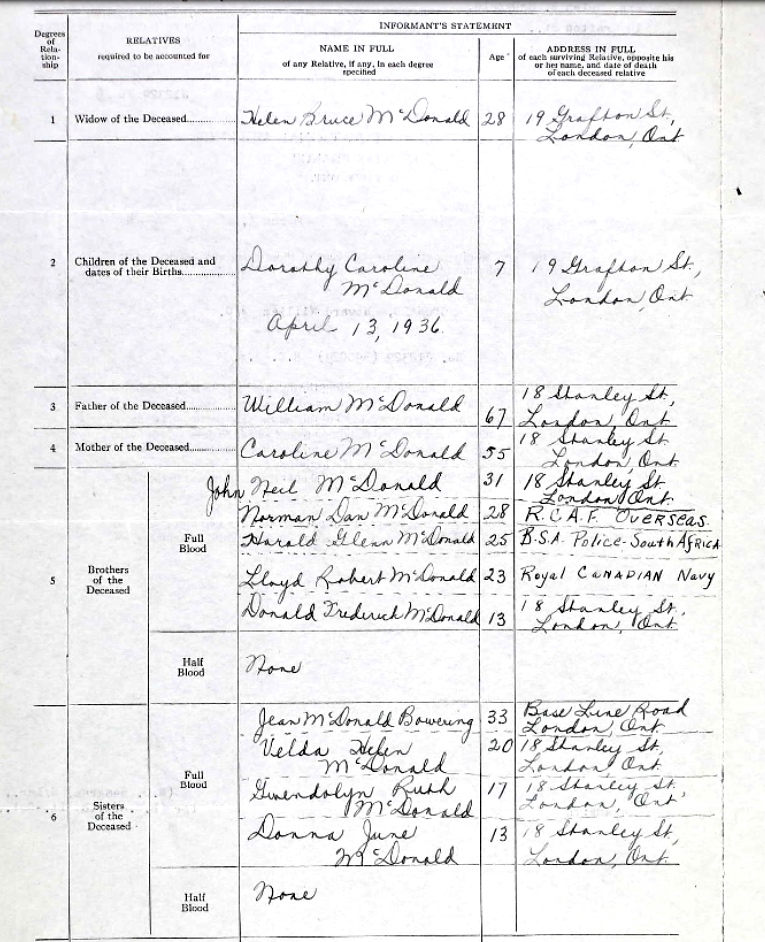 INFORMANT'S STATEMENT
Degrees of Rela-tion-ship
RELATIVES
required to be accounted for
NAME IN FULL
of any Relative, if any, in each degree specified
Age
ADDRESS IN FULL
of each surviving Relative, opposite his or her name, and date of death of each deceased relative
1 Widow of the Deceased........... Helen Bruce McDonald 28 19 Grafton St.,
London, Ont
2 Children of the Deceased and
dates of their Births............... Dorothy Caroline 7 19 Grafton St.,
McDonald London, Ont
April 13, 1936.
3 Father of the Deceased........... William McDonald 67 18 Stanley St.,
London, Ont
4 Mother of the Deceased........... Caroline McDonald 55 18 Stanley St.
London, Ont.
5 Brothers of the Deceased
Full Blood
John Neil McDonald 31 18 Stanley St.
London Ont.
Norman Dan McDonald 28 R.C.A.F. Overseas.
Harald Glenn McDonald 25 B.S.A. Police-South Africa
Lloyd Robert McDonald 23 Royal Canadian Navy
Donald Frederick McDonald 13 18 Stanley St.
London, Ont.
Half Blood
None
6 Sisters of the Deceased
Full Blood
Jean McDonald Bowering 33 Base Line Road
London, Ont.
Velda Helen 20 18 Stanley St,
McDonald London Ont
Gwendolyn Ruth 17 18 Stanley St.,
McDonald London, Ont
Donna June 13 18 Stanley St,
McDonald London, Ont.
Half Blood
None